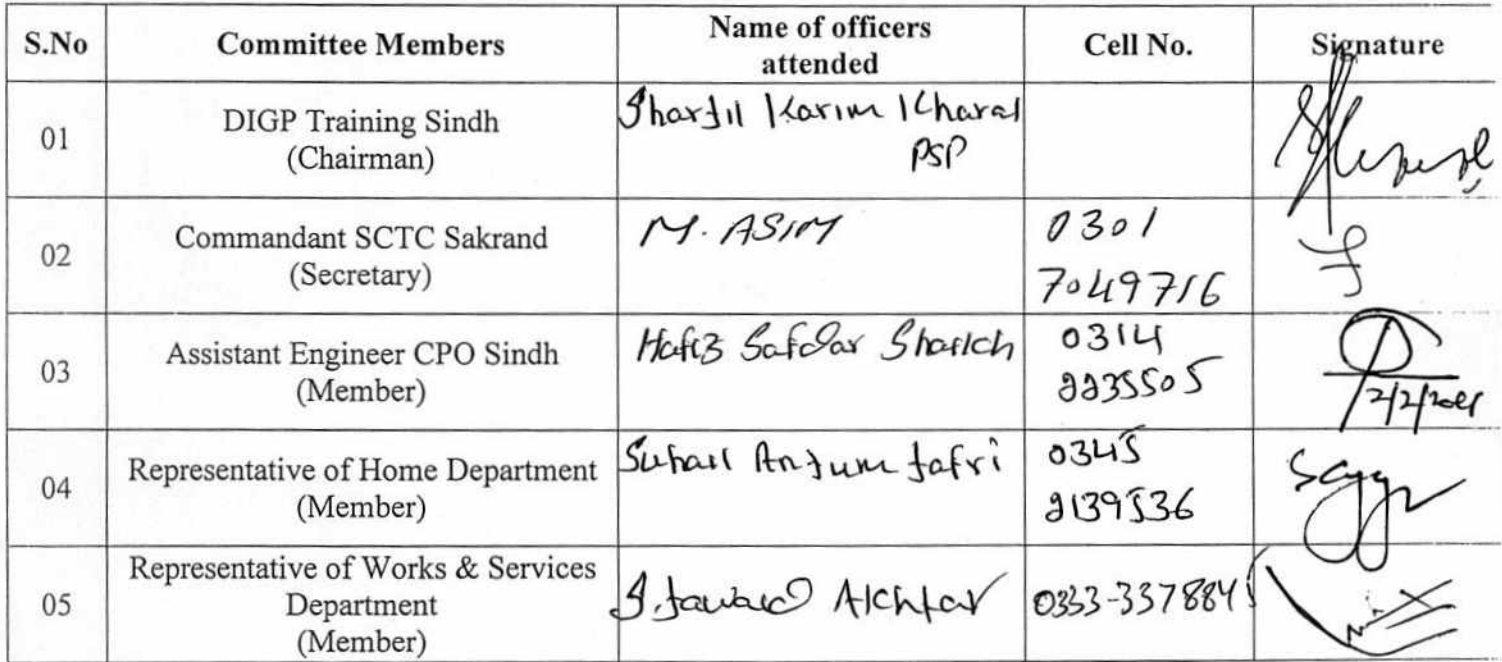 S.No Committee Members Name of officers attended Cell No. Signature
01 DIGP Training Sindh (Chairman) Sharjil Karim Kharal PSP
02 Commandant SCTC Sakrand (Secretary) M. ASIM 0301 7049716
03 Assistant Engineer CPO Sindh (Member) Hafiz Safdar Shaikh 0314 2235505
04 Representative of Home Department (Member) Suhail Anjum Jafri 0345 2139536
05 Representative of Works & Services Department (Member) S. Jawaid Akhtar 0333-3378845